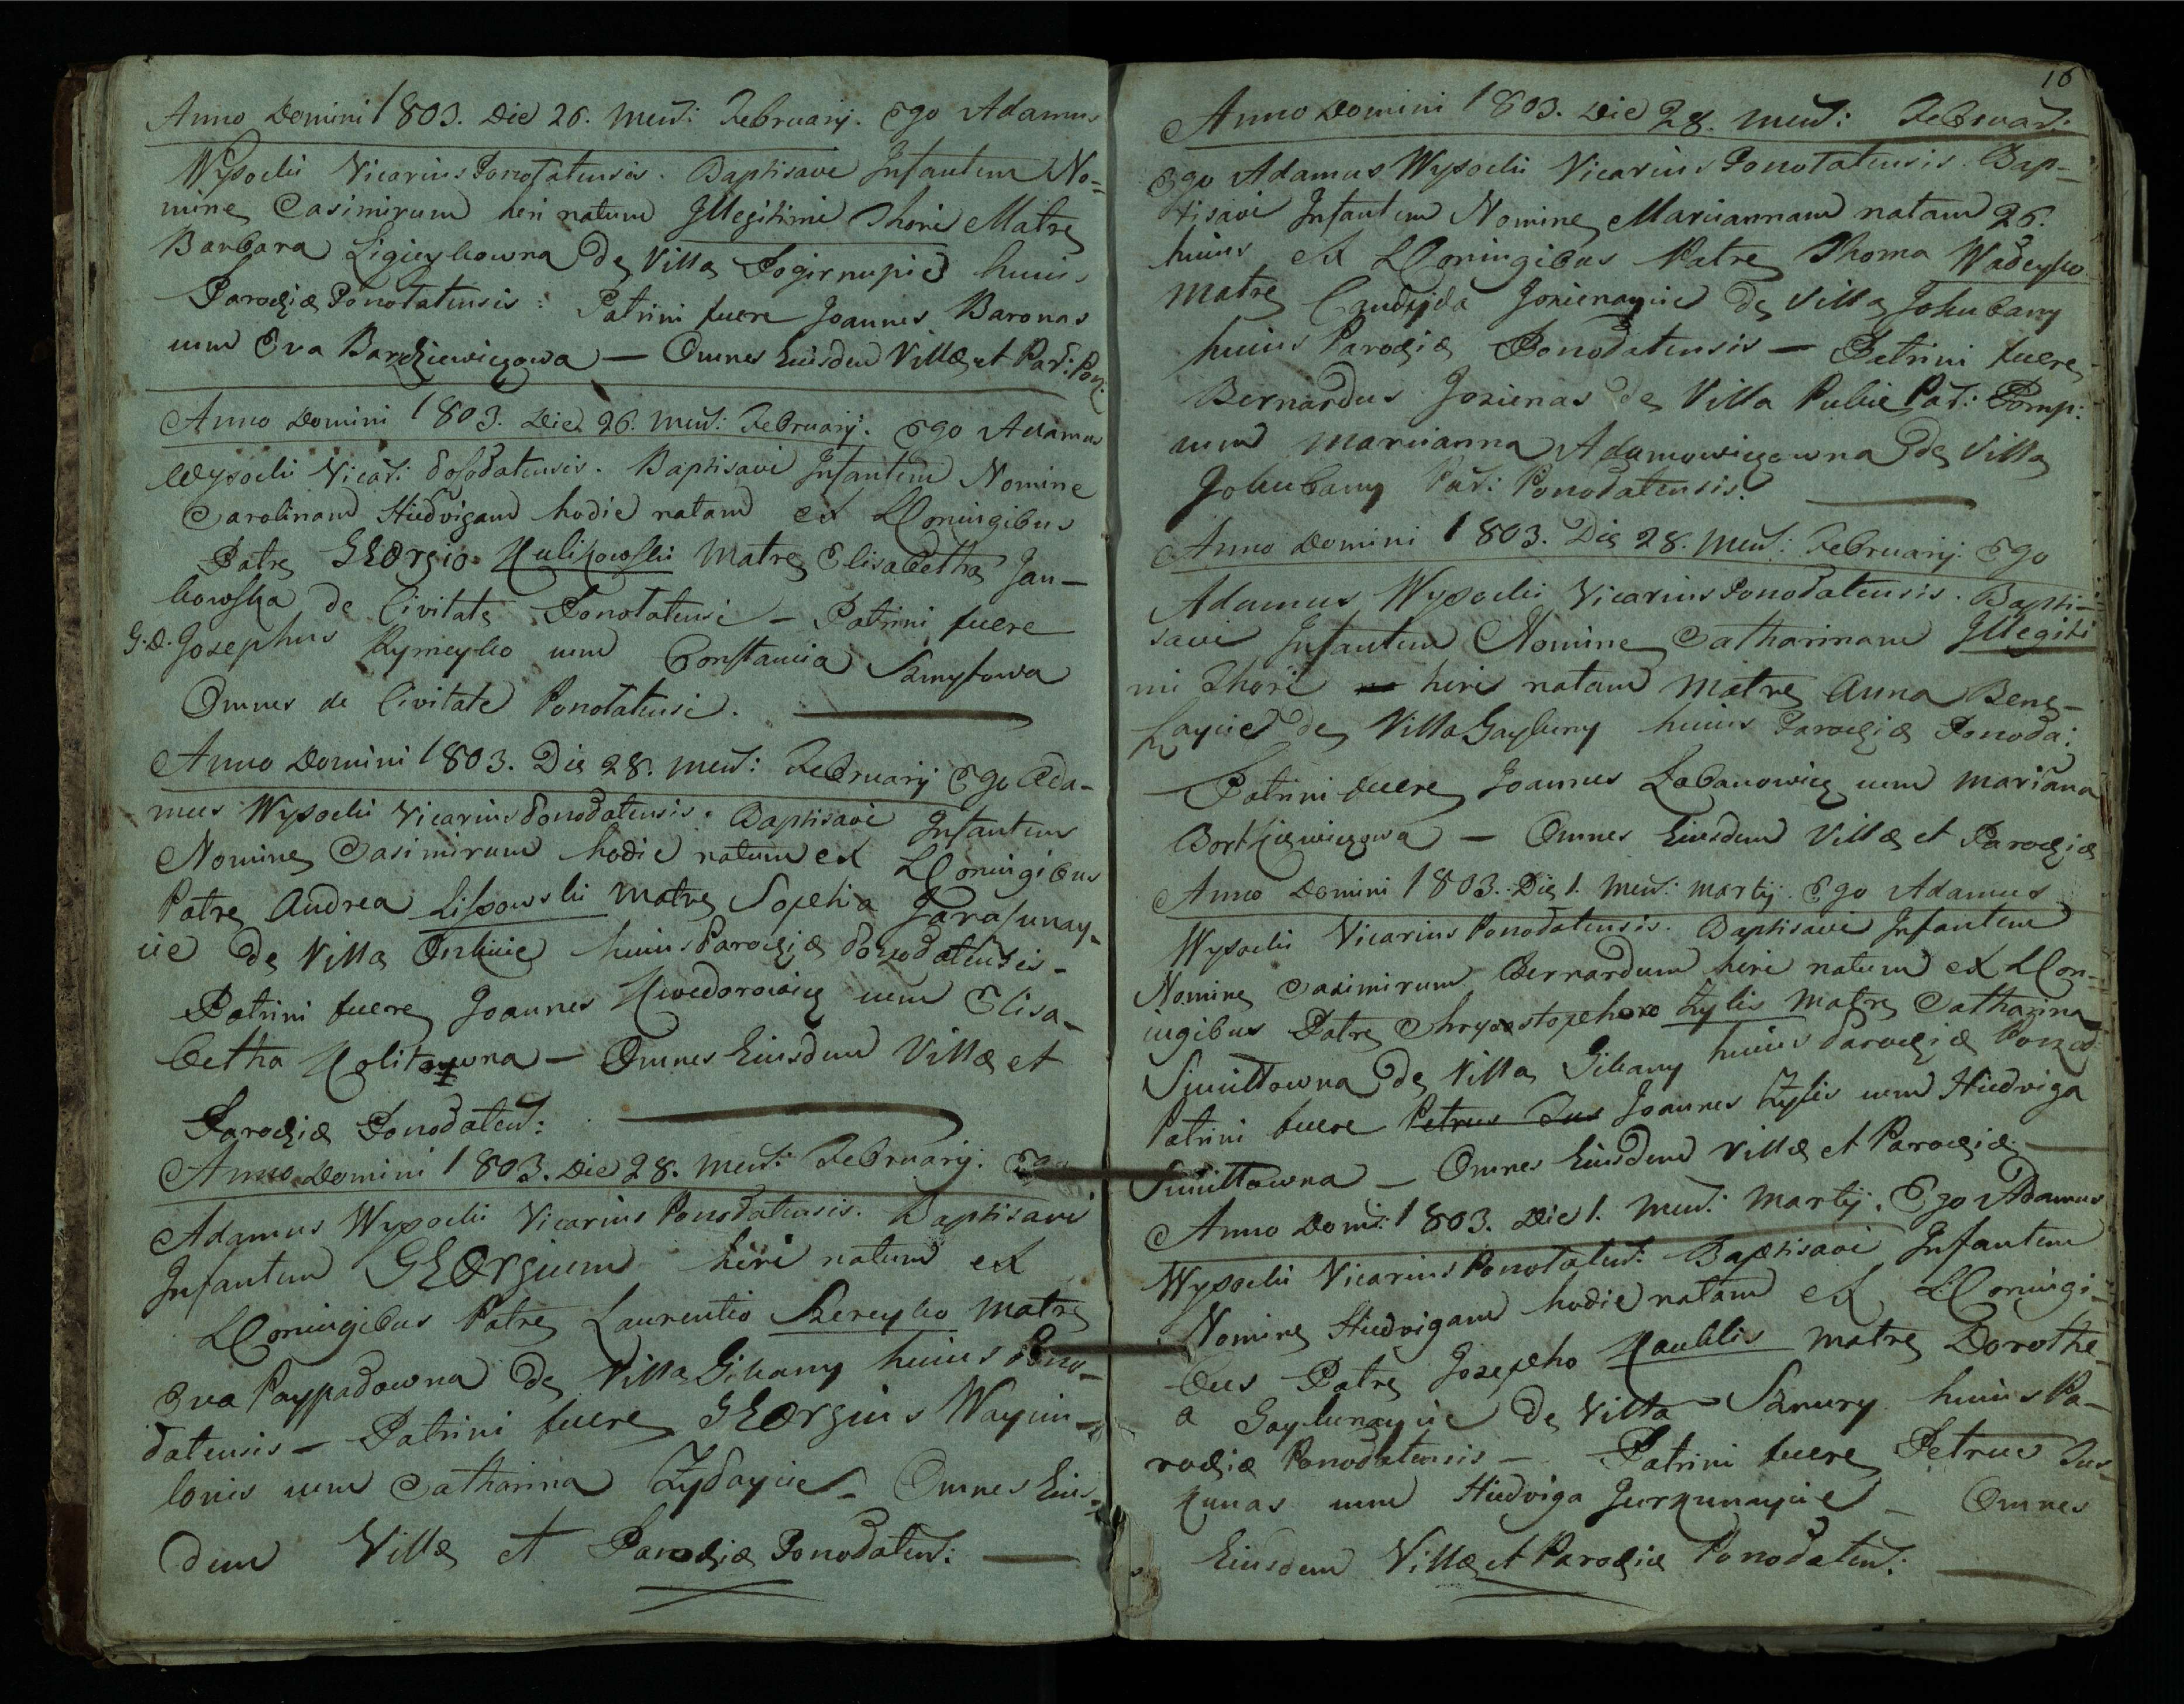 Anno Domini 1803. Die 26. Mens: Februarij. Ego Adamus
Wysocki Vicarius Ponotatensis. Baptisavi Infantem No=
mine Casimirum heri natum Illegitimi Thori Matre
Barbara de Villa Pogirnupie huius
Parochiæ Ponotatensis: Patrini fuere Joannes Baronas
cum Eva Bardziewiczowa — Omnes Eiusdem Villæ et Par: Pon:
Anno Domini 1803. Die 26. Mens: Februarij. Ego Adamus
Wysocki Vicar: Baptisavi Infantem Nomine
Carolinam Hiedvigam hodie natam ex Coniugibus
Patre GEOrgio Kulikowski Matre Elisabetha Jan—
kowska de Civitate Ponotatensi — Patrini fuere
G.D. Josephus Rymeyko cum Constancia
Omnes de Civitate Ponotatensi.
Anno Domini 1803. Die 28. Mens: Februarij Ego Ada-
mus Wysocki Vicarius Ponodatensis. Baptisavi Infantem
Nomine Casimirum hodie natum ex Coniugibus
Patre Andrea Lissowski Matre Sophia
cie de Villa huius Parochiæ Ponodatensis —
Patrini fuere Joannes Kwedorowicz cum Elisa-
betha — Omnes Eiusdem Villæ et
Parochiæ Ponodaten:
Anno Domini 1803. Die 28. Mens: Februarij. Ego
Adamus Wysocki Vicarius Ponodatensis. Baptisavi
Infantem GEOrgium heri natum ex
Coniugibus Patre Laurentio Szereyko Matre
Eva Paypadowna de Villa Gikany huius Pono-
datensis — Patrini fuere GEOrgius
cum Catharina Zydaycie — Omnes Eius-
dem Villæ et Parochiæ Ponodaten: —
16
Anno Domini 1803. Die 28. Mens: Februar:
Ego Adamus Wysocki Vicarius Ponotatensis. Bap-
tisavi Infantem Nomine Mariannam natam 26.
huius ex Coniugibus Patre Thoma Wadeyko
Matre Jozienaycie de Villa Johubany
huius Parochiæ Ponodatensis — Patrini fuere
Bernardus Jozienas de Villa Par: Pomp:
cum Marianna Adamowiczowna de Villa
Johubany Par: Ponodatensis.
Anno Domini 1803. Die 28. Mens: Februarij Ego
Adamus Wysocki Vicarius Ponodatensis. Bapti-
savi Infantem Nomine Catharinam Illegiti
mi Thori heri natam Matre Anna
de Villa Gayluny huius Parochiæ Ponoda:
Patrini fuere Joannes Labanowicz cum Mariana
Bortkiewiczowa — Omnes Eiusdem Villæ et Parochiæ
Anno Domini 1803. Die 1. Mens: Martij. Ego Adamus
Wysocki Vicarius Ponodatensis. Baptisavi Infantem
Nomine Casimirum Bernardum heri natum ex Con-
iugibus Patre Chrysostophoro Zylis Matre Catharina
Smiltowna de Villa Gikany huius Parochiæ Ponod:
Patrini fuere Petrus Jus Joannes Zylis cum Hiedviga
Smiltowna — Omnes Eiusdem Villæ et Parochiæ —
Anno Domi: 1803. Die 1. Mens: Martij. Ego Adamus
Wysocki Vicarius Ponotaten: Baptisavi Infantem
Nomine Hiedvigam hodie natam ex Coniugi-
bus Patre Josepho Kauklis Matre Dorothe-
a Gaylunaycie de Villa Sznury huius Pa-
rochiæ Ponodatensis — Patrini fuere Petrus Jus-
kunas cum Hiedviga Jurkunaycie — Omnes
Eiusdem Villæ et Parochiæ Ponodaten: